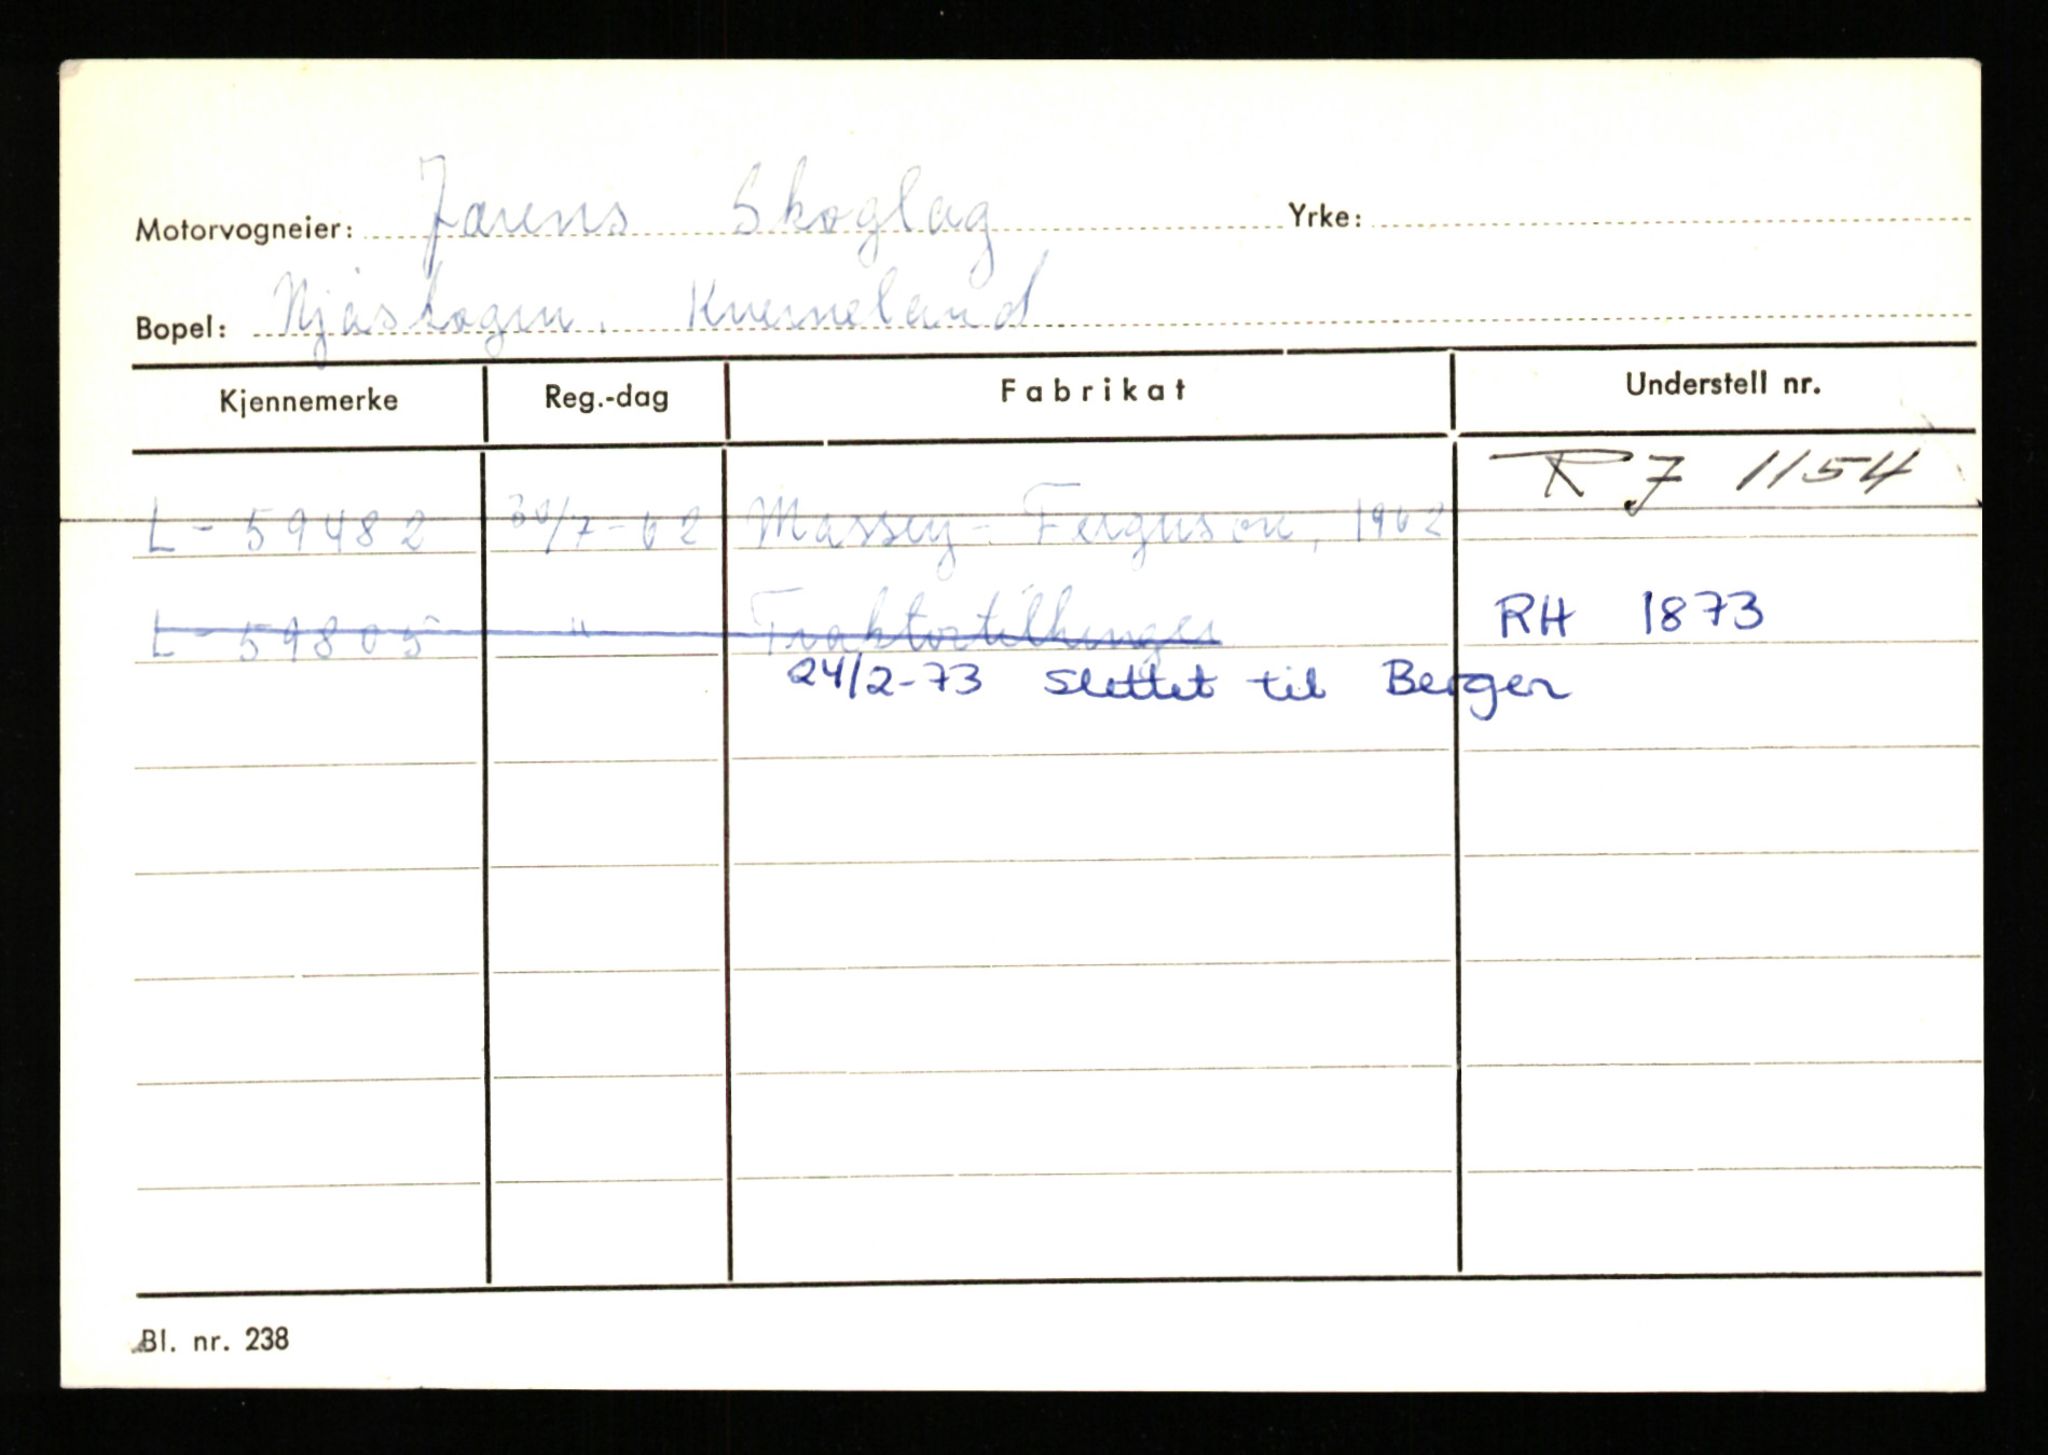 Motorvogneier: Jærens Skoglag Yrke:
Bopel: Njåskogen. Kverneland
Kjennemerke Reg.-dag Fabrikat Understell nr.
RJ 1154
L - 59482 30/7-62 Massey-Ferguson, 1962
L - 59805 " Traktortilhenger RH 1873
24/2-73 slettet til Bergen
Bl. nr. 238